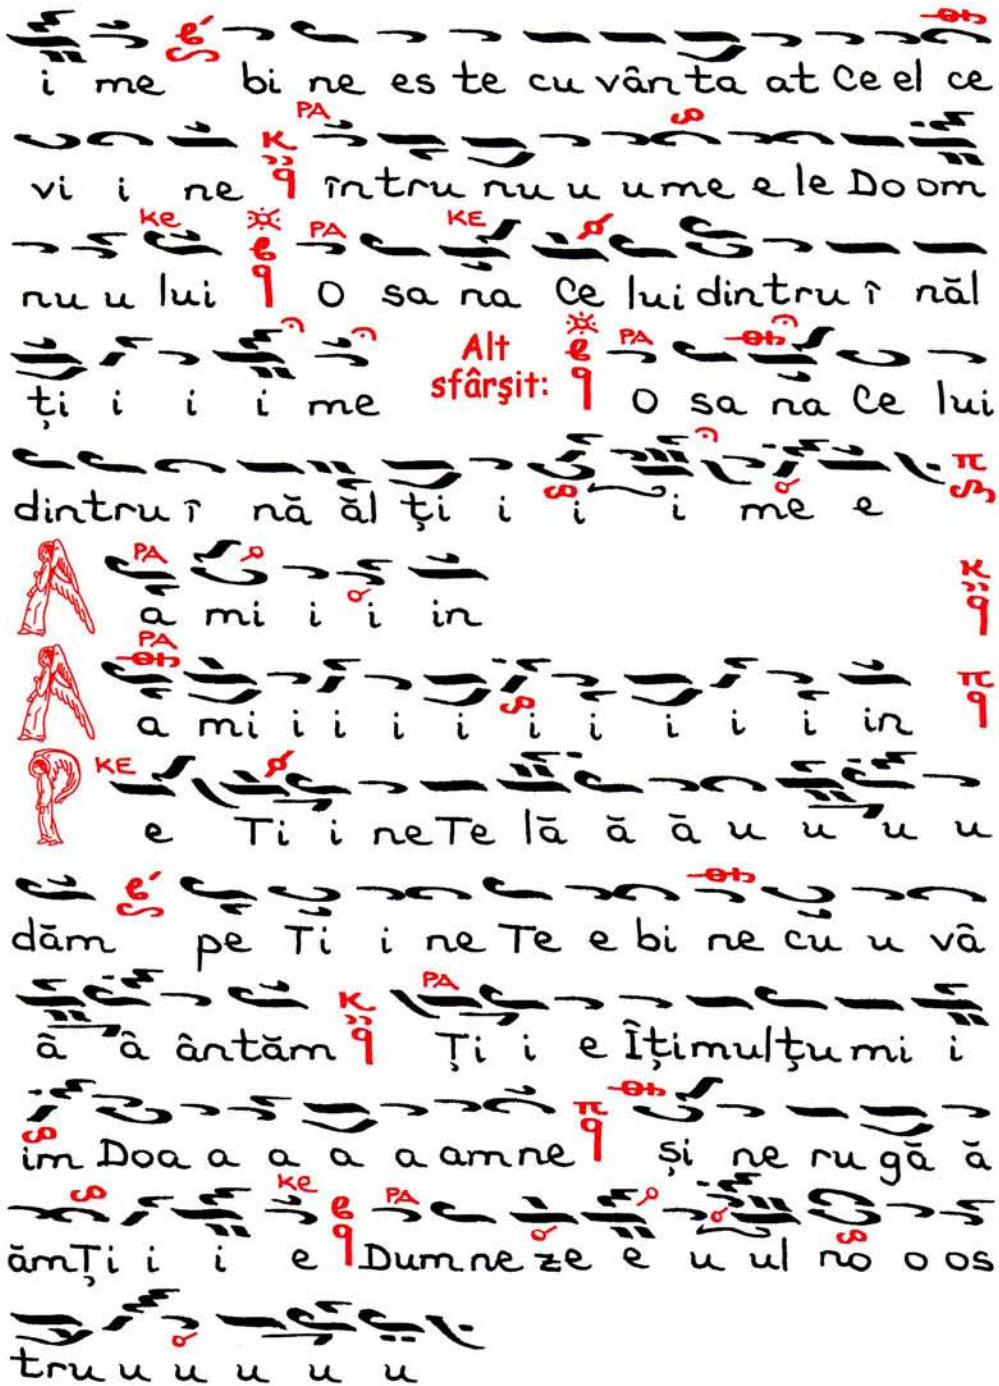 i me bi ne es te cu vân ta at Ce el ce
PA
vi i ne întru nu u u me e le Do om
Ke PA KE
nu u lui O sa na Ce lui din tru î năl
Alt sfârșit: PA
ți i i i me O sa na Ce lui
din tru î nă ăl ți i i i me e π
PA
A a mi i i in
PA
A a mi i i i i i i i i i in π
KE
P e Ti i ne Te lă ă ă u u u u
dăm pe Ti i ne Te e bi ne cu u vâ
PA
â â ântăm Ți i e Îți mulțu mi i
im Doa a a a a am ne π și ne ru gă ă
Ke PA
ăm Ți i i e Dum ne ze e u ul no o os
tru u u u u u